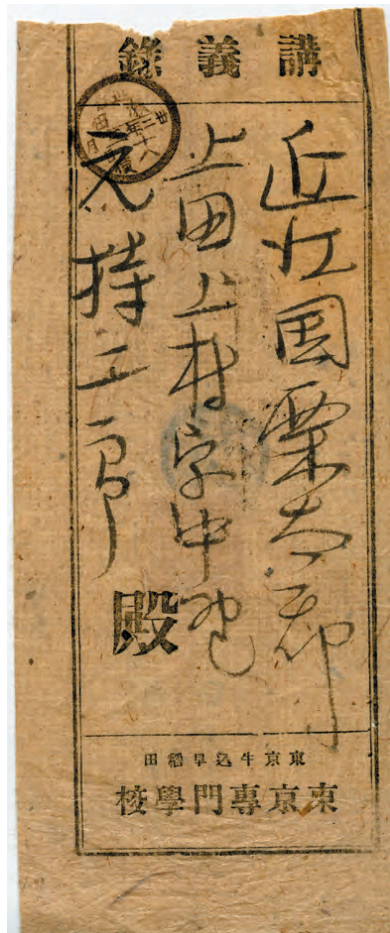 講義錄
近江国栗太郡
上田上村字中野
元持工二郎
殿
東京牛込早稻田
東京專門學校